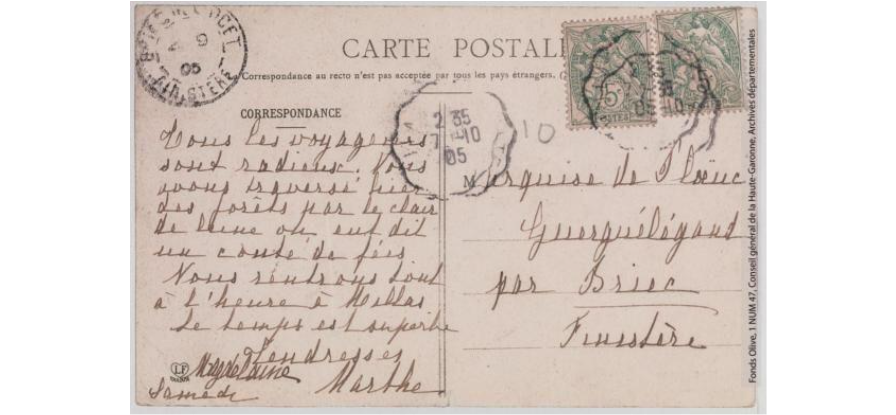 FINISTÈRE
05
CARTE POSTALE
Correspondance au recto n'est pas acceptée par tous les pays étrangers.
CORRESPONDANCE
2 35
7-10
05
10
5
POSTES
05 10
Tous les voyageurs
sont radieux. Nous
avons traversé hier
des forêts par le clair
de lune on eut dit
un conte de fées
Nous rentrons tout
à l'heure à Millas
Le temps est superbe
Tendresses
Magdelaine Marthe
Samedi
Marquise de Ploeuc
Guerguélégand
par Briec
Finistère
LF
Fonds Olive, 1 NUM 47, Conseil général de la Haute-Garonne, Archives départementales